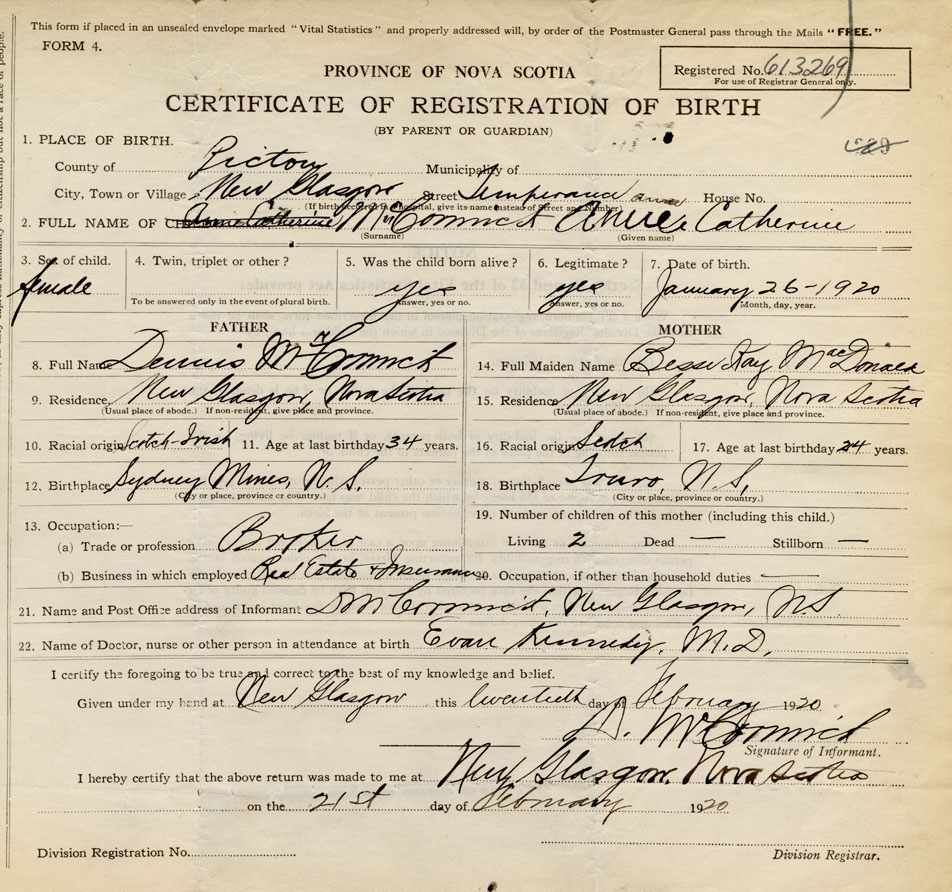 This form if placed in an unsealed envelope marked "Vital Statistics" and properly addressed will, by order of the Postmaster General pass through the Mails "FREE."
FORM 4.
Registered No. 613269
For use of Registrar General only.
PROVINCE OF NOVA SCOTIA
CERTIFICATE OF REGISTRATION OF BIRTH
(BY PARENT OR GUARDIAN)
1. PLACE OF BIRTH.
County of Pictou Municipality of
City, Town or Village New Glasgow Street Temperance House No.
(If birth occurred in hospital, give its name instead of Street and Number)
2. FULL NAME OF Annie Catherine McCormick Anne Catherine
(Surname) (Given name)
3. Sex of child. 4. Twin, triplet or other? 5. Was the child born alive? 6. Legitimate? 7. Date of birth.
female yes yes January 26-1920
To be answered only in the event of plural birth. Answer, yes or no. Answer, yes or no. Month, day, year.
FATHER MOTHER
8. Full Name Dennis McCormick 14. Full Maiden Name Besse Kay MacDonald
9. Residence New Glasgow, Nova Scotia 15. Residence New Glasgow, Nova Scotia
(Usual place of abode.) If non-resident, give place and province. (Usual place of abode.) If non-resident, give place and province.
10. Racial origin Scotch-Irish 11. Age at last birthday 34 years. 16. Racial origin Scotch 17. Age at last birthday 24 years.
12. Birthplace Sydney Mines, N.S. 18. Birthplace Truro, N.S.
(City or place, province or country.) (City or place, province or country.)
13. Occupation:— 19. Number of children of this mother (including this child.)
(a) Trade or profession Broker Living 2 Dead — Stillborn —
(b) Business in which employed Real Estate + Insurance 20. Occupation, if other than household duties —
21. Name and Post Office address of Informant D McCormick, New Glasgow, NS
22. Name of Doctor, nurse or other person in attendance at birth Evan Kennedy, M.D.
I certify the foregoing to be true and correct to the best of my knowledge and belief.
Given under my hand at New Glasgow this twentieth day of February 1920
D. McCormick
Signature of Informant.
I hereby certify that the above return was made to me at New Glasgow, Nova Scotia
on the 21st day of February 1920
Division Registration No.
Division Registrar.